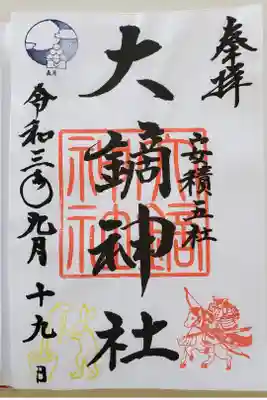 奉拝
安積五社
大鏑神社
令和三年九月十九日